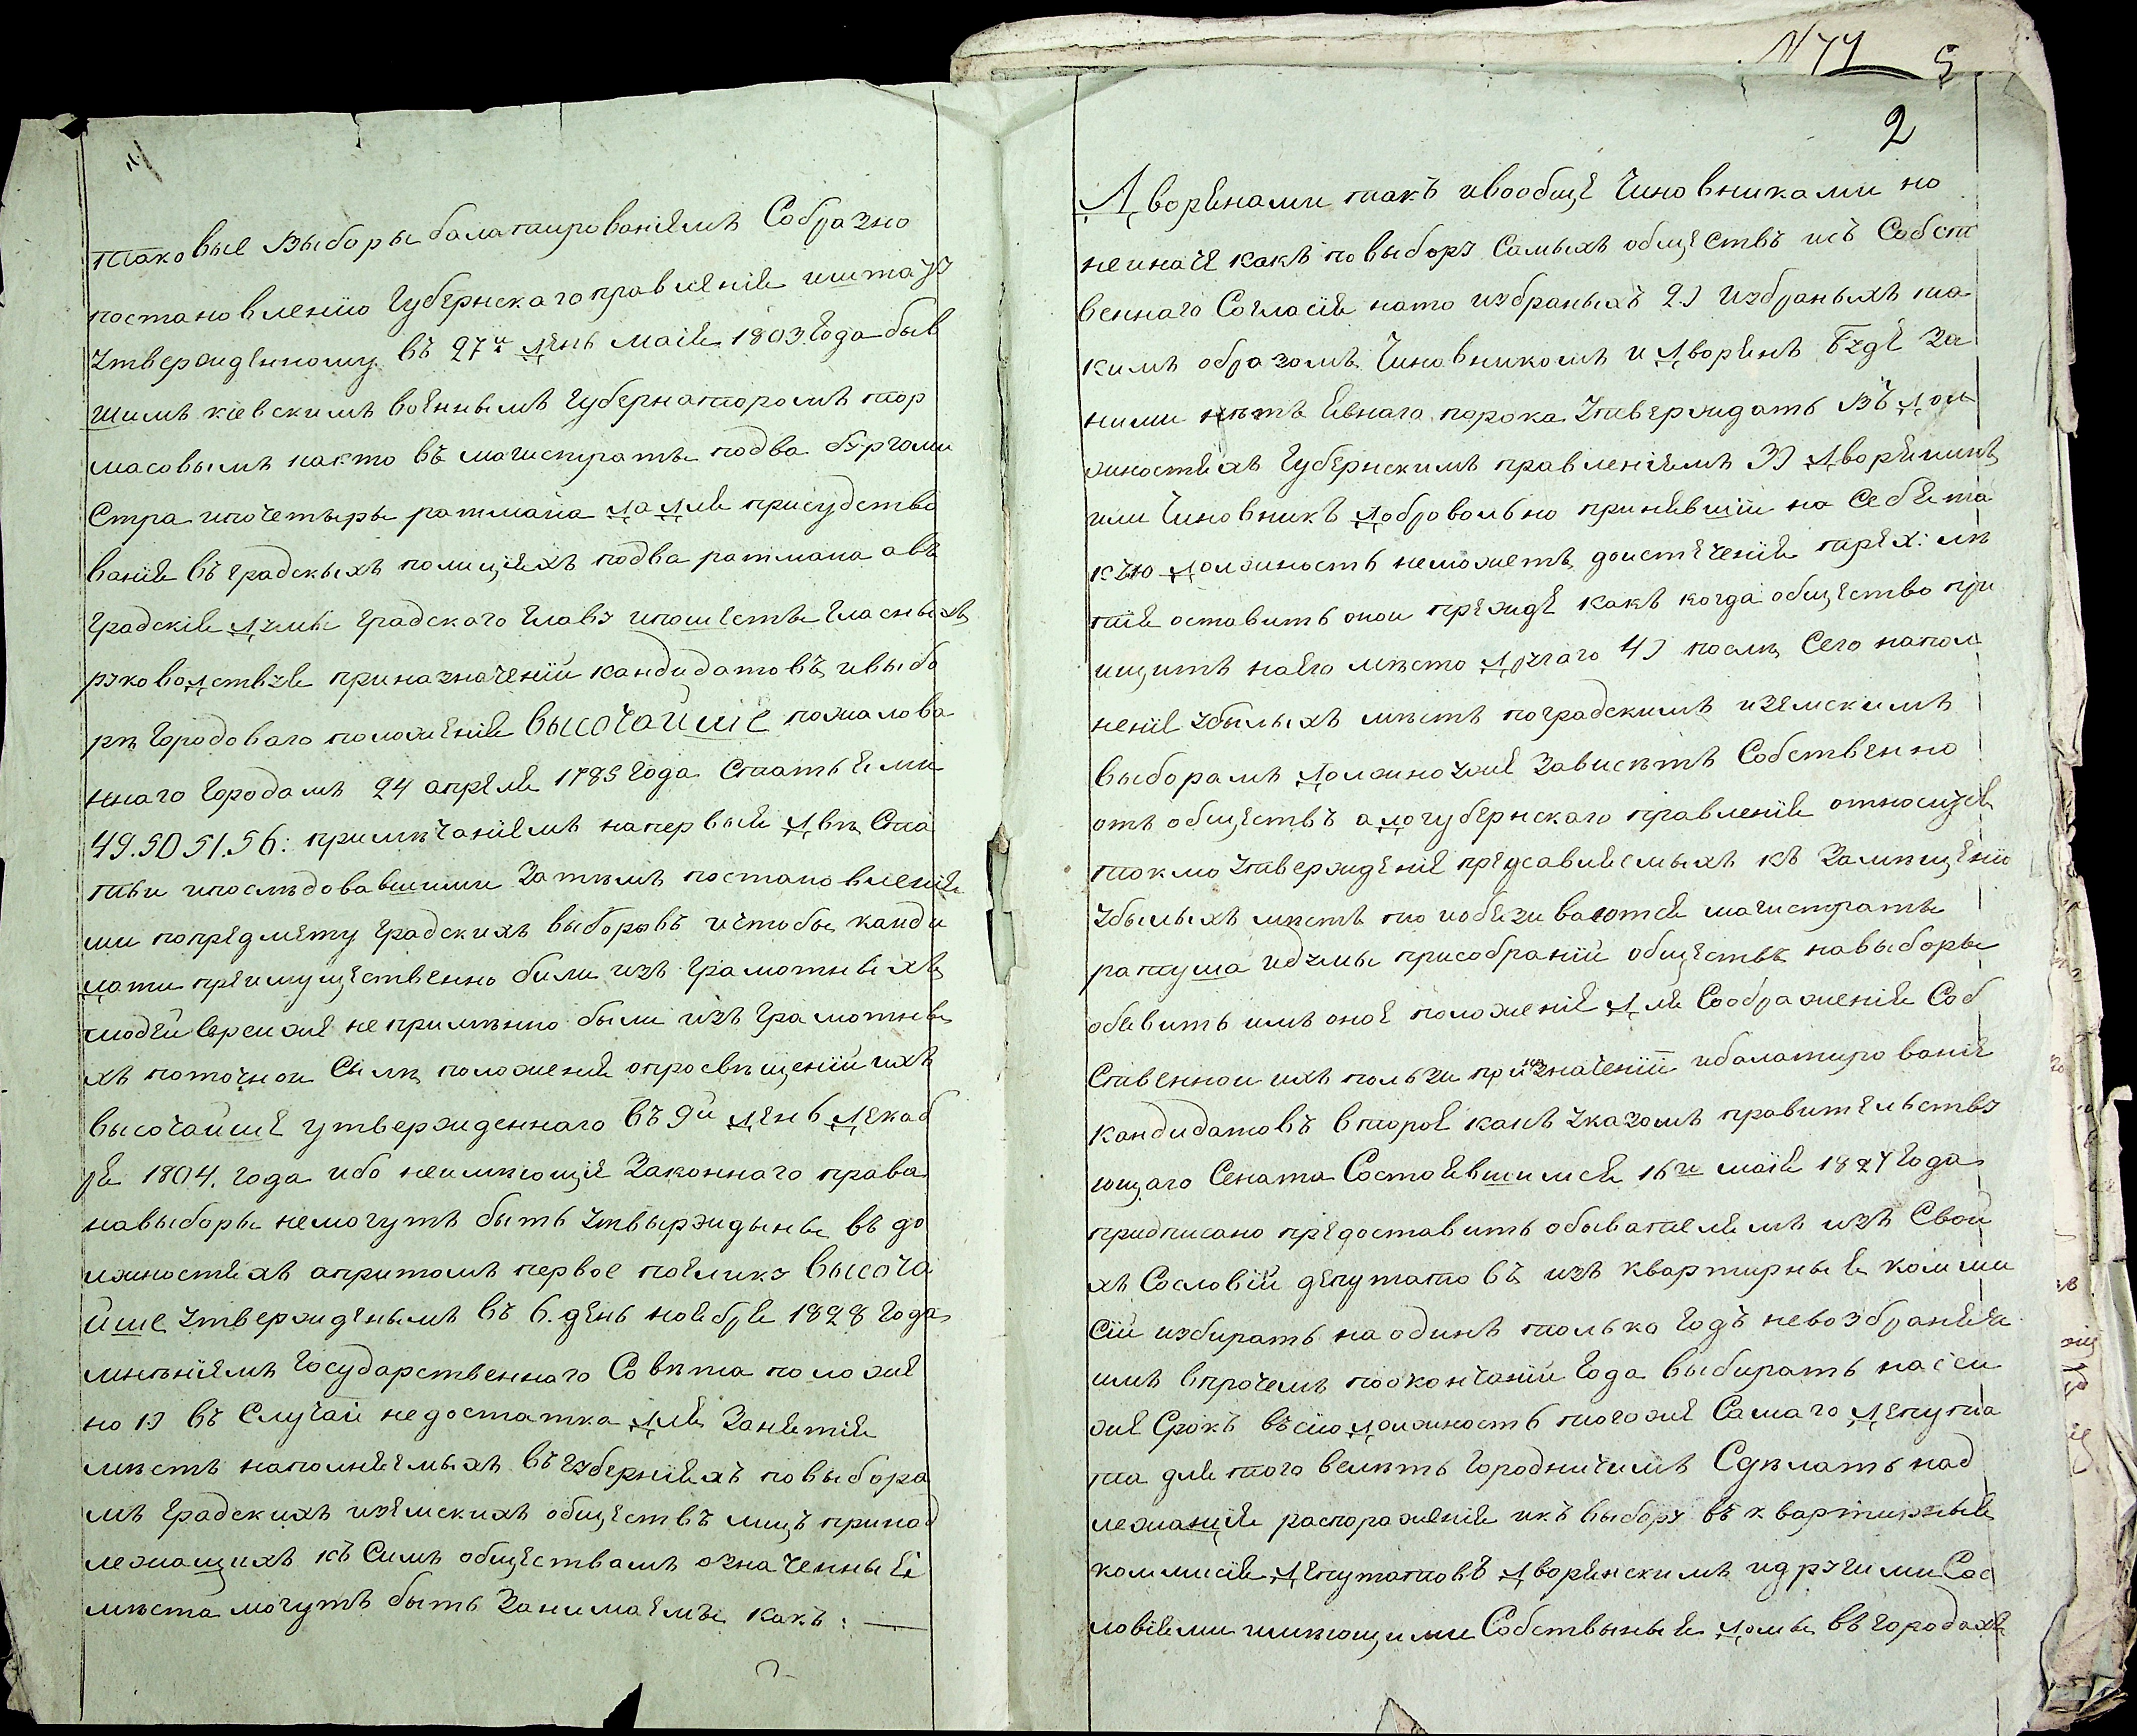 таковые выборы балатированіемъ Собразно
постановленію Губернскаго правленія иштату
утвержденному въ 27й день маія 1803 Года быв
шимъ кіевскимъ военнымъ Губернаторомъ тор
масовымъ накто въ магистраты подва бургоми
Стра ипочетыры ратмана для присудство
ванія въ Градскихъ полиціяхъ подва ратмана авъ
Градскія думы Градскаго Главу ипошесты Гласныхъ
руководствуя приназначеніи кандидатовъ ивыбо
рѣ Городоваго положенія высочайше пожалова
ннаго Городамъ 24 апреля 1785 Года Статьями
49. 50 51. 56: примѣчаніемъ напервыя двѣ Ста
тьи ипослѣдовавшими Затѣмъ постановленія
ми попредмету Градскихъ выборовъ ичтобы канди
даты преимущественно били изъ Грамотныхъ
людей Евреи же непримѣнно были изъ Грамотны
хъ поточной Силѣ положенія опросвѣщеніи ихъ
высочайше утвержденнаго въ 9й день декаб
ря 1804. года ибо неимѣющія Законнаго права
навыборы немогутъ быть утвырждыны въ до
лжностяхъ апритомъ первое поелику высоча
йше утвержденымъ въ 6. день ноября 1828 Года
мнѣніемъ Государственнаго Совѣта положе
но 1) въ Случаи недостатка для Занятія
мѣстъ наполняемыхъ въ Губерніяхъ повыбора
мъ Градскихъ иземскихъ обществъ лицъ принад
лежащихъ къ Симъ обществамъ означенные
мѣста могутъ быть Занимаемы какъ: —
N 77 5
2
Дворянами такъ ивообще Чиновниками но
неиначе какъ повыбору Самыхъ обществъ исъ Собст
веннаго Согласія нато избраныхъ 2) Избраныхъ та
кимъ образомъ Чиновникомъ и дворянъ Буде За
ними нѣтъ явнаго порока утверждать въ дол
жностяхъ Губернскимъ правленіемъ 3) дворянинъ
или Чиновникъ добровольно принявшіи на Себя та
кую должность неможетъ доистеченія трех: лѣ
тія оставить онои прежде какъ когда общество при
ищитъ наего мѣсто другаго 4) послѣ Сего напол
неніе убылыхъ мѣстъ поградскимъ иземскимъ
выборамъ должно уже Зависѣтъ Собственно
отъ обществъ адогубернскаго правленія относится
токмо утвержденіе предсавляемыхъ къ Замѣщенію
убылыхъ мѣстъ то иобязиваются магистраты
ратуша идумы присобраніи обществъ навыборы
обявить имъ оное положеніе для Соображенія Соб
Ственнои ихъ пользи приназначеніи ибалатированіе
кандидатовъ второе какъ указомъ правительству
ющаго Сената Состоявшимся 16го маія 1827 Года
придписано предоставить обывателямъ изъ Свои
хъ Сословіи депутатовъ изъ квартирные комми
Сіи избирать наодинъ только Годъ невозбраняя
имъ впрочемъ поокончаніи Года выбирать насеи
же Срокъ всію должность тогоже Самаго депута
та для того велѣть Городничимъ Сдѣлать над
лежащія распоряженія икъ выбору въ квартирныя
коммисіи депутатовъ дворянскимъ идругими Сос
ловіями имѣющими Собствыныя домы въ городахъ